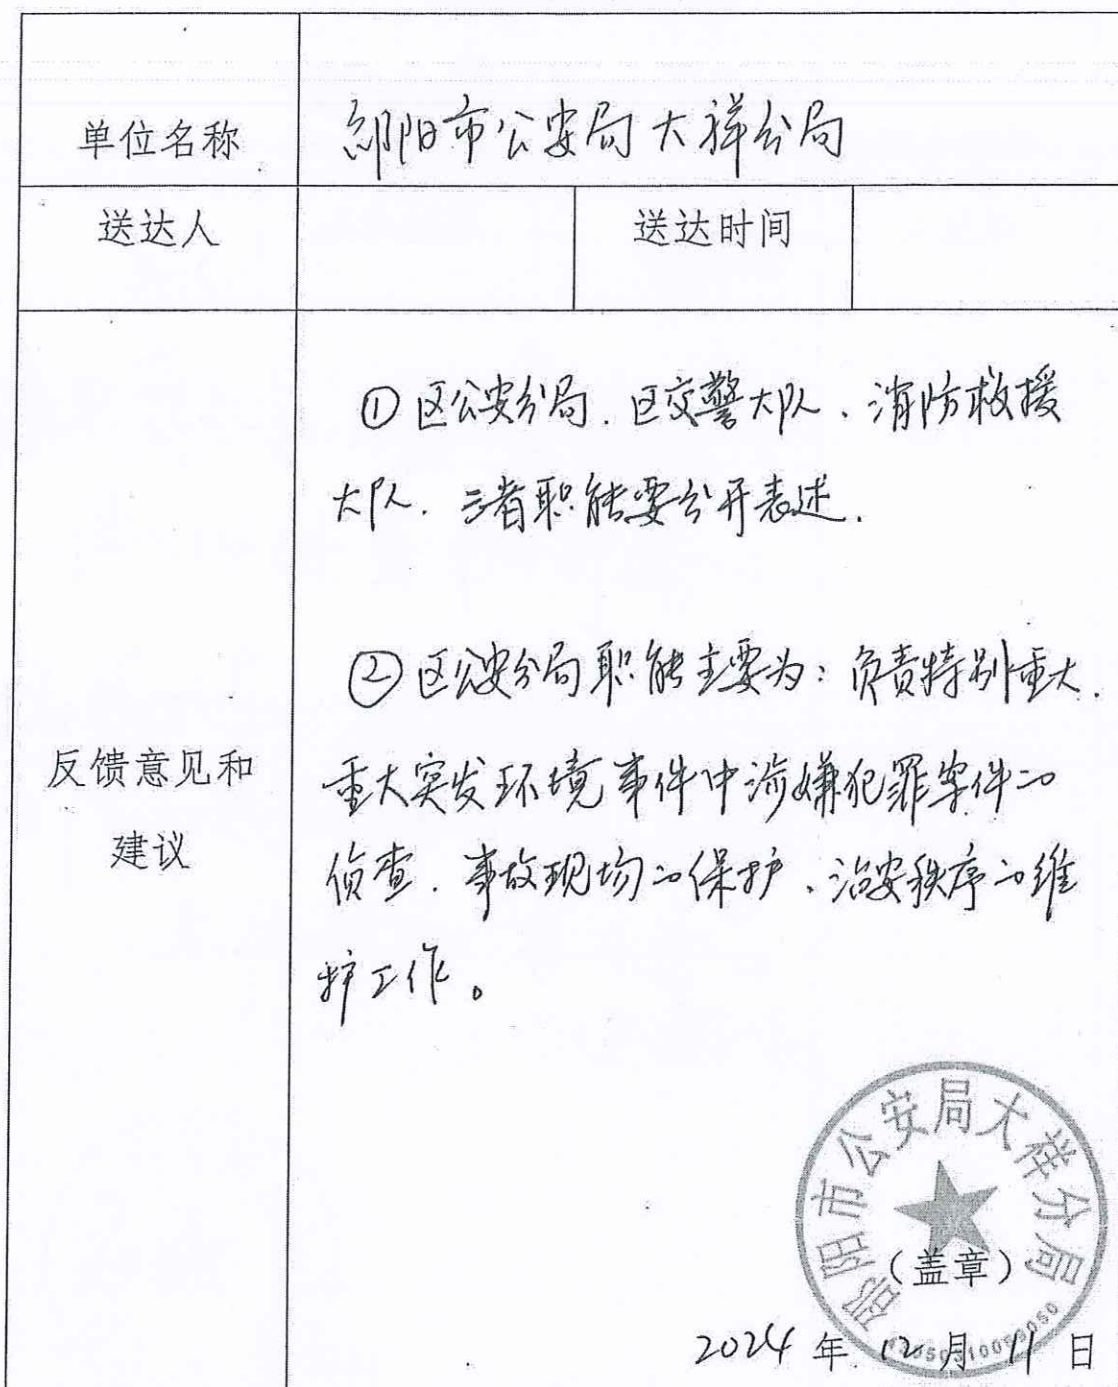 单位名称 邵阳市公安局大祥分局
送达人 送达时间
①区公安分局、区交警大队、消防救援
大队、三者职能要分开表述.
②区公安分局职能主要为：负责特别重大、
重大突发环境事件中涉嫌犯罪案件的
侦查、事故现场的保护、治安秩序的维
护工作。
反馈意见和
建议
邵阳市公安局大祥分局
（盖章）
2024年12月11日